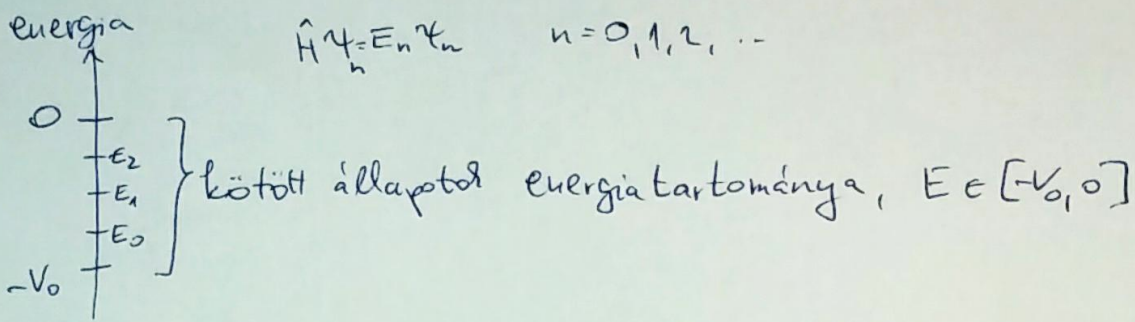 energia
Ĥψₙ=Eₙψₙ n=0,1,2,...
0
E₂
E₁
E₀
-V₀
kötött állapotok energiatartománya, E ∈ [-V₀,0]